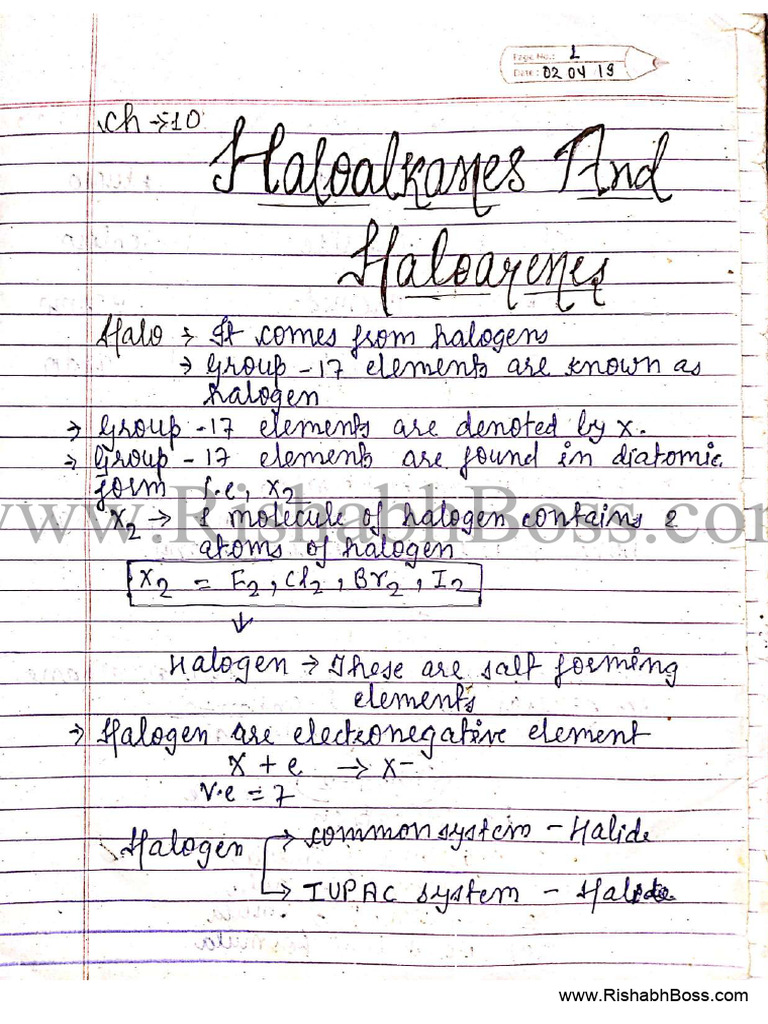 Page No.: 1
Date: 02 04 19
Ch → 10
Haloalkanes And
Haloarenes
Halo → It comes from halogens
→ Group -17 elements are known as
halogen
→ Group -17 elements are denoted by X.
→ Group -17 elements are found in diatomic
form i.e, X2
www.RishabhBoss.com
X2 → 1 molecule of halogen contains 2
atoms of halogen
X2 = F2, Cl2, Br2, I2
↓
Halogen → These are salt forming
elements
→ Halogen are electronegative element
X + e → X–
V.e = 7
Halogen → common system – Halide
→ IUPAC system –
www.RishabhBoss.com